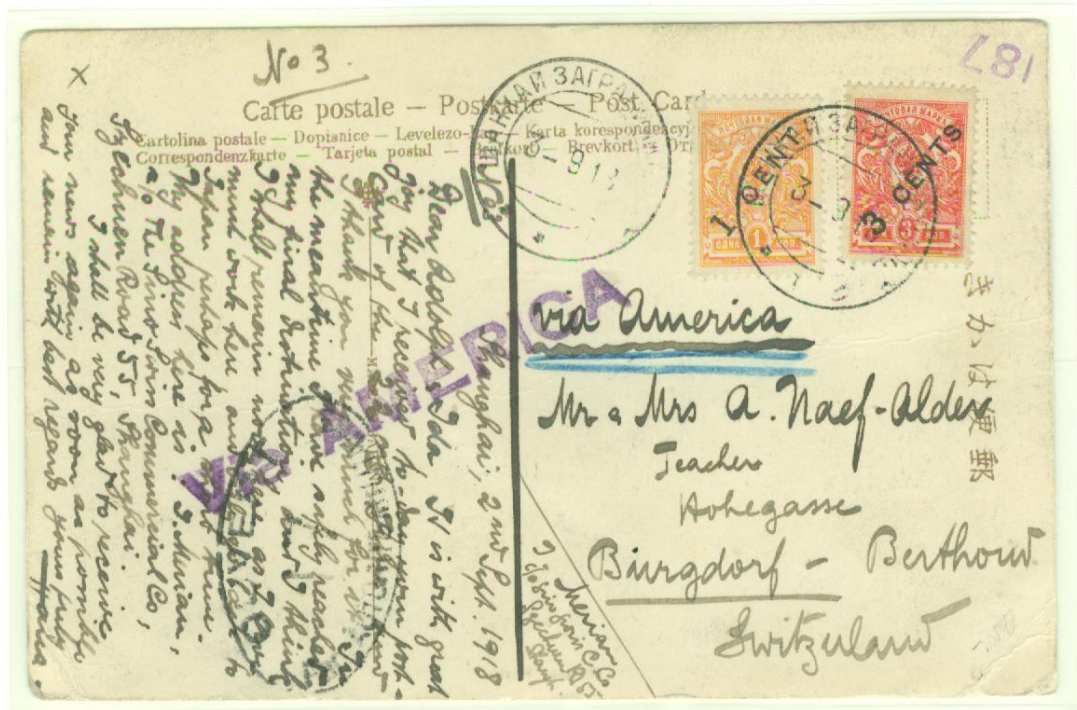 No 3.
187
Carte postale — Postkarte — Post Card
Cartolina postale — Dopianice — Levelezo- — Karta korespondencyj
Correspondenzkarte — Tarjeta postal — Brefkort — Brevkort —
ШАНХАЙ ЗАГРАН
3-9 18
ПОЧТОВАЯ МАРКА
1 CENT
ОДНА 1 КОП.
ПОЧТОВАЯ МАРКА
3 CENTS
3 КОП.
きかは便郵
via America
Via AMERICA
Mr & Mrs A. Naef-Alder
Teacher
Hohegasse
Burgdorf - Berthoud
Switzerland
J Merian
c/o Sino Swiss C. Co
Szechuen Rd 55
Shangh.
Shanghai, 2nd Sept. 1918
Dear Adolf & Ida, It is with great
joy that I received to-day your post-
card of the
I thank you very much for it. In
the meantime I have safily reached
my final destination and I think
I shall remain now here as I
must work here and
Japan perhaps for a short time.
My address here is: J. Merian,
c/o The Sino-Swiss Commercial Co,
Szechuen Road 55, Shanghai.
I shall be very glad to receive
your news again as soon as possible
and remain with best regards yours truly
Hans.
x